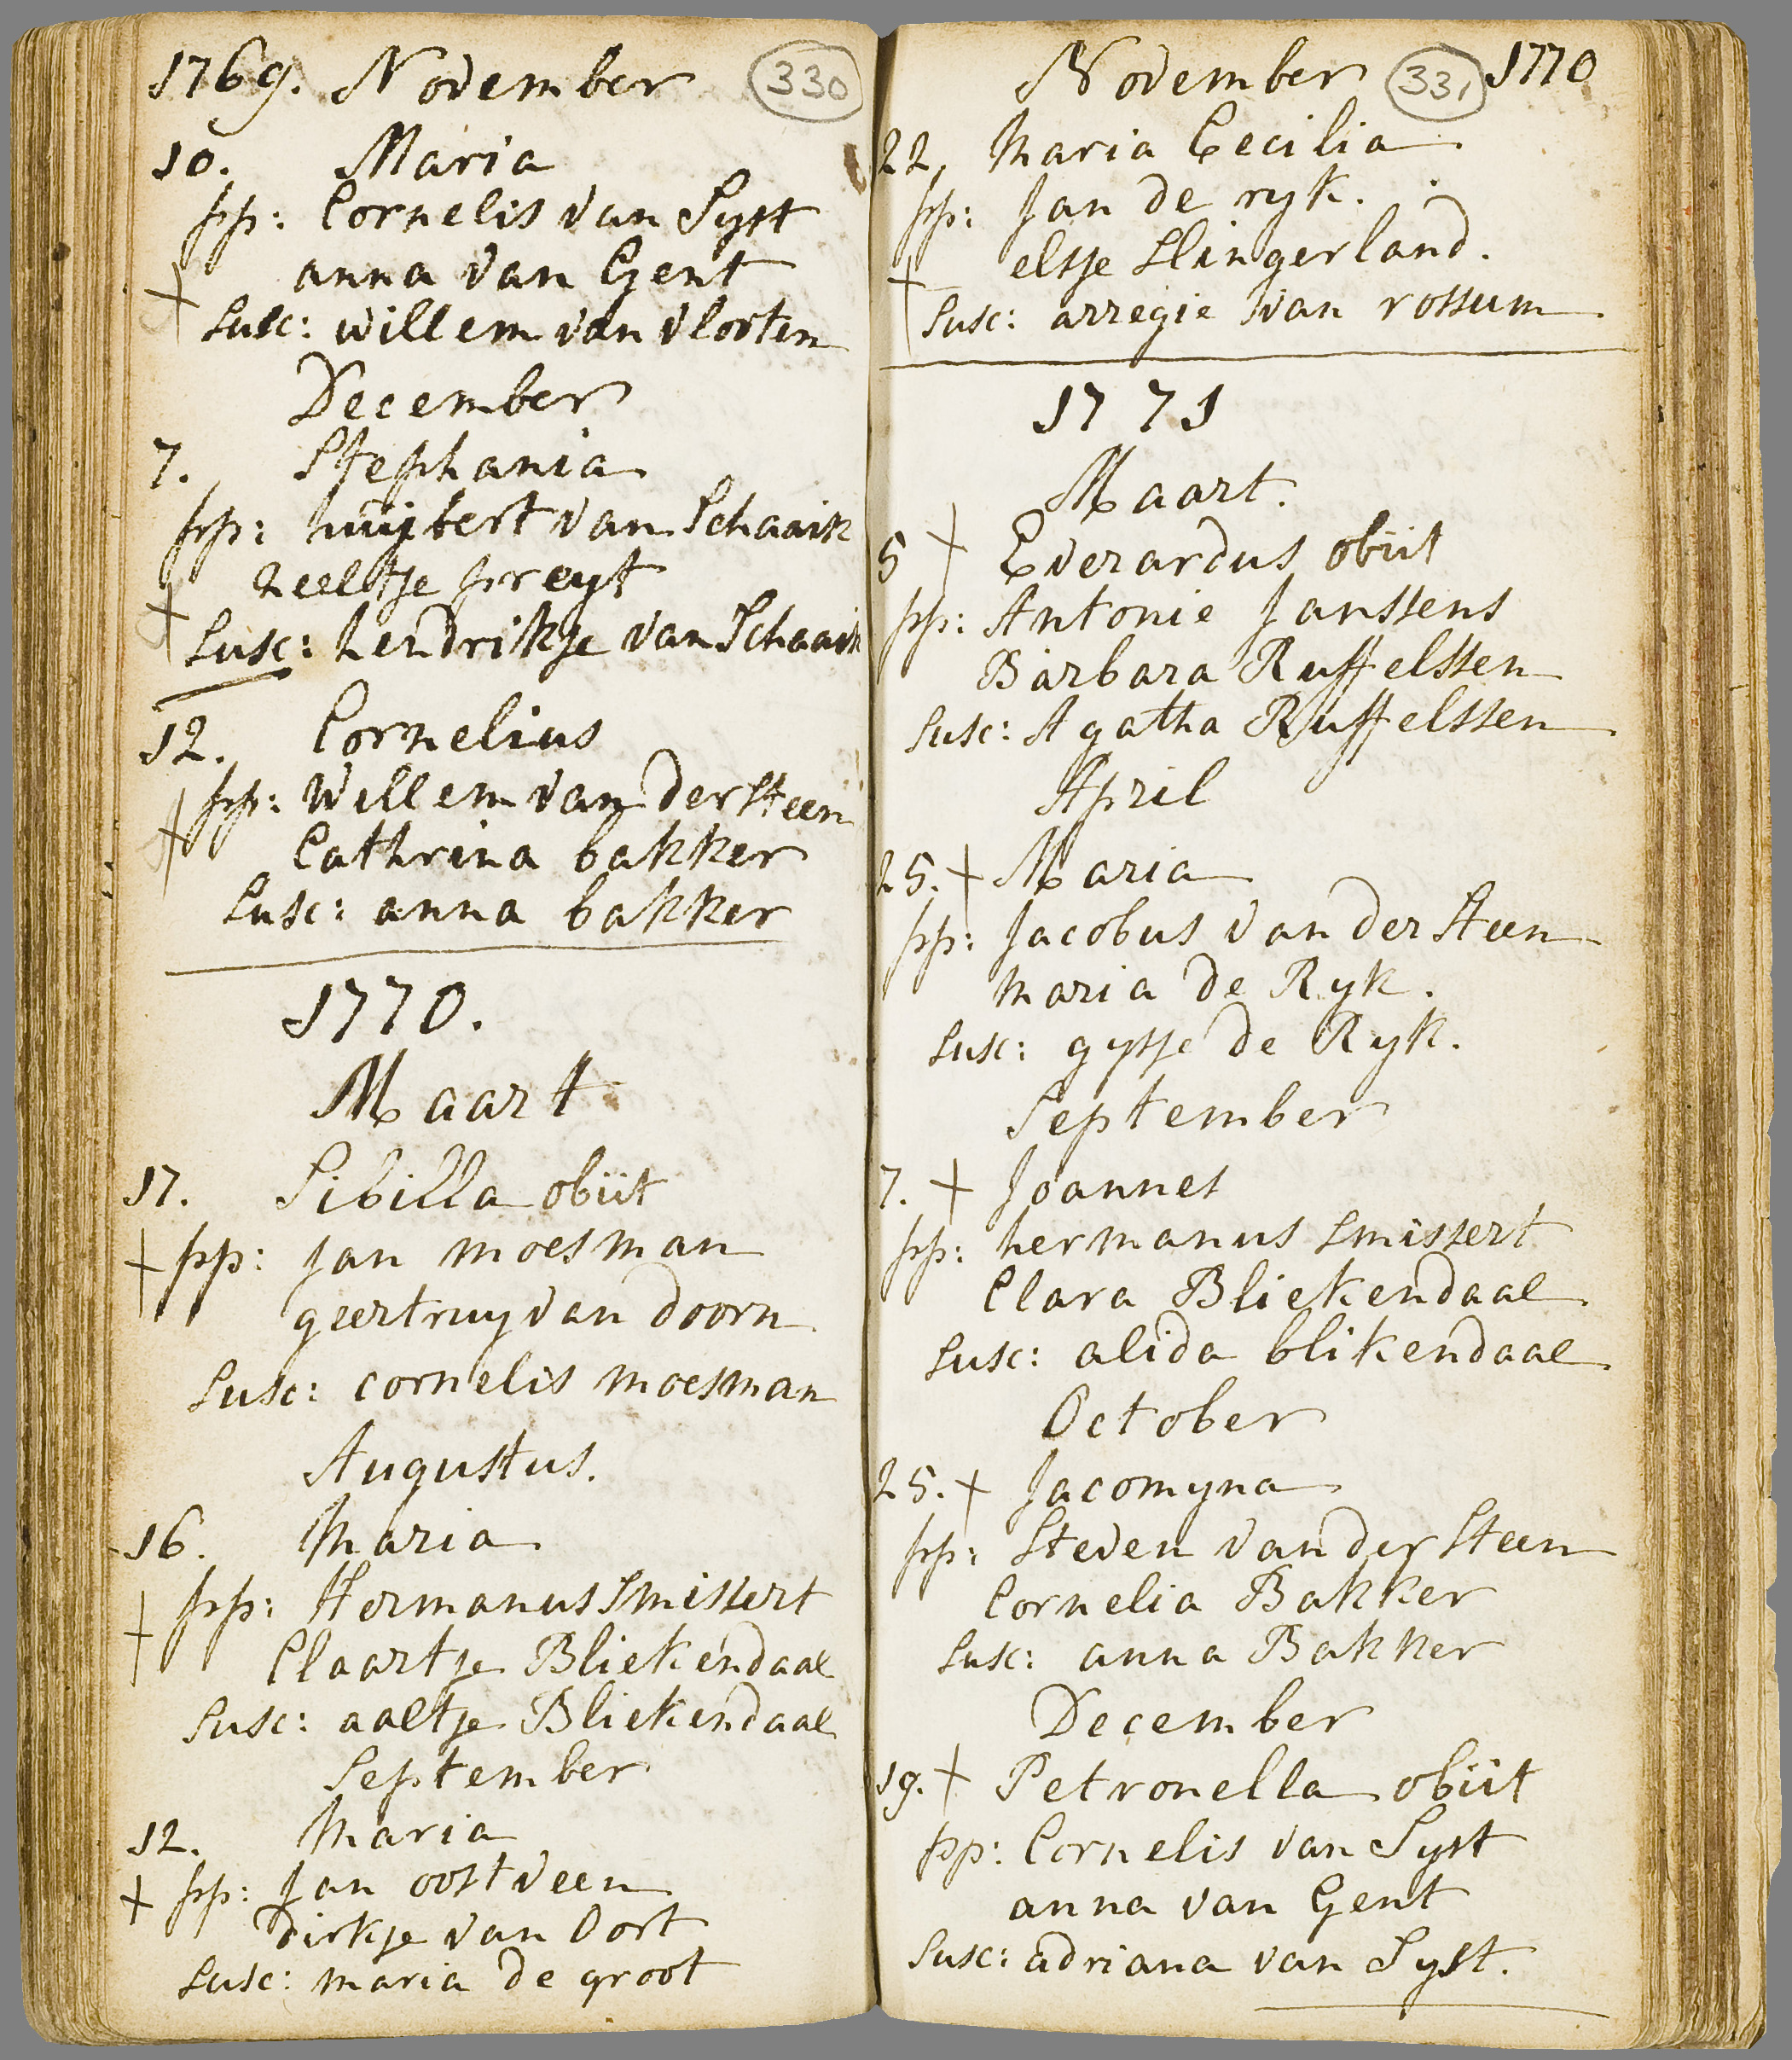 1769. November 330
10. Maria
pp: Cornelis van Syst
anna van Gent
Susc: willem van vlooten
December
7. Stephania
pp: huijbert van Schaaik
neeltje preyt
Susc: hendrikje van Schaaik
12. Cornelius
pp: Willem van der steen
Cathrina bakker
Susc: anna bakker
1770.
Maart
17. Sibilla obiit
pp: jan moesman
geertruy van doorn
Susc: cornelis moesman
Augustus.
16. Maria
pp: Hermanus Smissert
Claartje Bliekendaal
Susc: aaltje Bliekendaal
September
12. Maria
pp: Jan oostveen
Dirkje van Oort
Susc: maria de groot
November 331 1770
22, Maria Cecilia
pp: Jan de ryk.
elsje slingerland.
Susc: arregie van rossum
1771
Maart.
5 Everardus obiit
pp: Antonie Janssens
Barbara Ruffelssen
Susc: Agatha Ruffelssen
April
25. Maria
pp: Jacobus van der Steen
Maria de Ryk.
Susc: gysje de Ryk.
September
7. Joannes
pp: hermanus Smissert
Clara Bliekendaal
Susc: alida blikendaal
October
25. Jacomyna
pp: Steven van der Steen
Cornelia Bakker
Susc: anna Bakker
December
19. Petronella obiit
pp: Cornelis van Syst
anna van Gent
Susc: adriana van Syst.